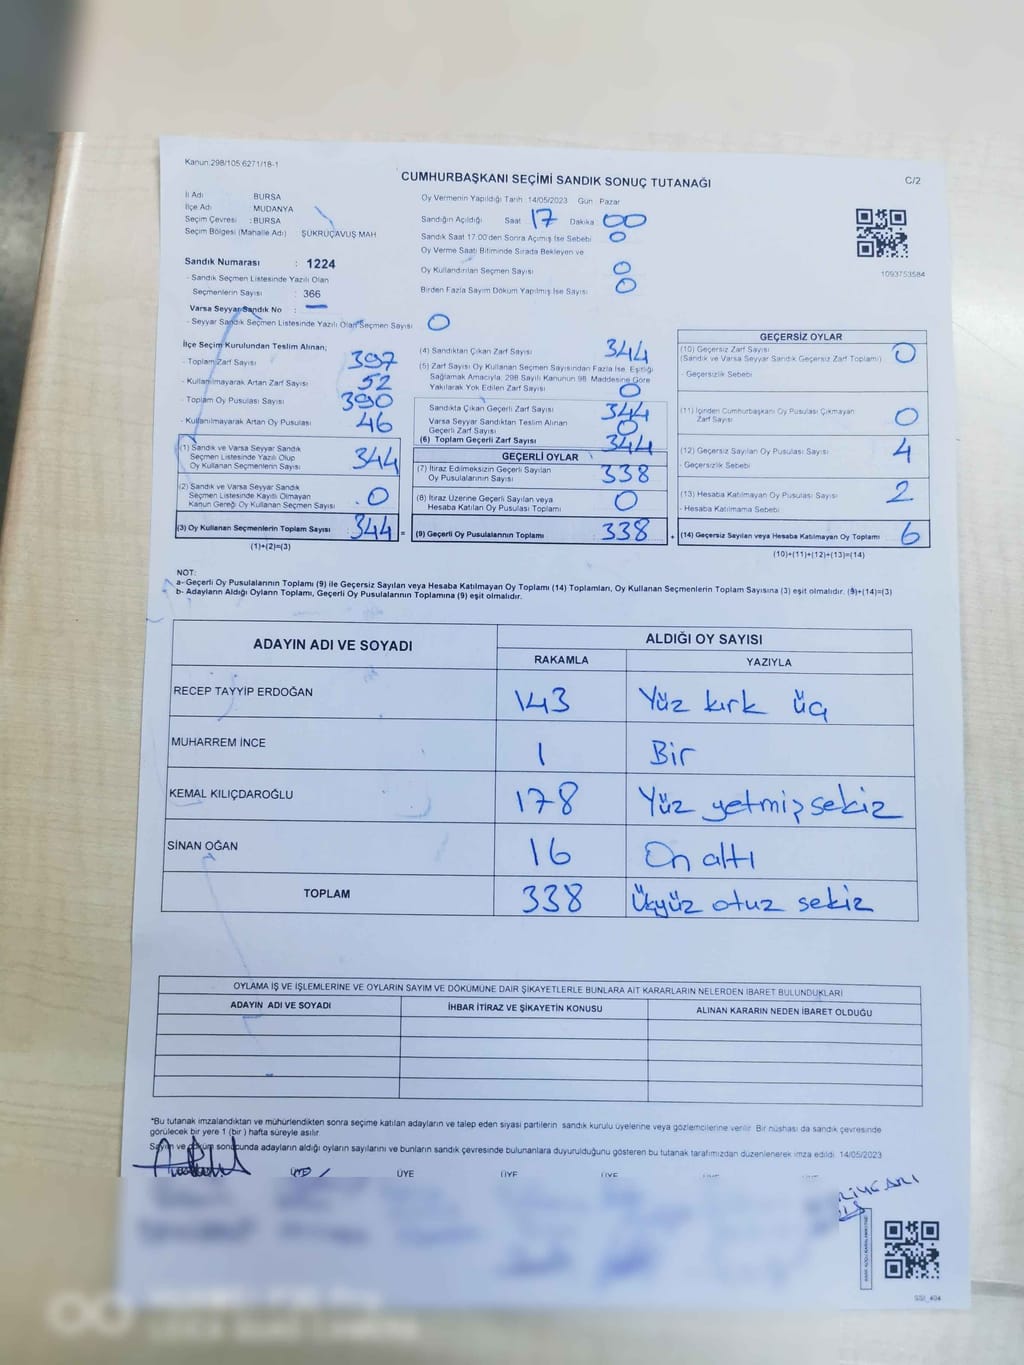 Kanun.298/105.6271/18-1
CUMHURBAŞKANI SEÇİMİ SANDIK SONUÇ TUTANAĞI
C/2
İl Adı BURSA
İlçe Adı MUDANYA
Seçim Çevresi : BURSA
Seçim Bölgesi (Mahalle Adı) ŞÜKRÜÇAVUŞ MAH
Sandık Numarası : 1224
- Sandık Seçmen Listesinde Yazılı Olan
Seçmenlerin Sayısı : 366
Varsa Seyyar Sandık No : —
- Seyyar Sandık Seçmen Listesinde Yazılı Olan Seçmen Sayısı 0
Oy Vermenin Yapıldığı Tarih 14/05/2023 Gün Pazar
Sandığın Açıldığı Saat 17 Dakika 00
Sandık Saat 17:00'den Sonra Açılmış İse Sebebi 0
Oy Verme Saati Bitiminde Sırada Bekleyen ve
Oy Kullandırılan Seçmen Sayısı 0
Birden Fazla Sayım Döküm Yapılmış İse Sayısı 0
1093753584
İlçe Seçim Kurulundan Teslim Alınan;
- Toplam Zarf Sayısı 397
- Kullanılmayarak Artan Zarf Sayısı 52
- Toplam Oy Pusulası Sayısı 390
- Kullanılmayarak Artan Oy Pusulası 46
(1) Sandık ve Varsa Seyyar Sandık
Seçmen Listesinde Yazılı Olup
Oy Kullanan Seçmenlerin Sayısı 344
(2) Sandık ve Varsa Seyyar Sandık
Seçmen Listesinde Kayıtlı Olmayan
Kanun Gereği Oy Kullanan Seçmen Sayısı 0
(3) Oy Kullanan Seçmenlerin Toplam Sayısı 344 =
(1)+(2)=(3)
(4) Sandıktan Çıkan Zarf Sayısı 344
(5) Zarf Sayısı Oy Kullanan Seçmen Sayısından Fazla İse, Eşitliği
Sağlamak Amacıyla, 298 Sayılı Kanunun 98. Maddesine Göre
Yakılarak Yok Edilen Zarf Sayısı 0
Sandıkta Çıkan Geçerli Zarf Sayısı 344
Varsa Seyyar Sandıktan Teslim Alınan
Geçerli Zarf Sayısı 0
(6) Toplam Geçerli Zarf Sayısı 344
GEÇERLİ OYLAR
(7) İtiraz Edilmeksizin Geçerli Sayılan
Oy Pusulalarının Sayısı 338
(8) İtiraz Üzerine Geçerli Sayılan veya
Hesaba Katılan Oy Pusulası Toplamı 0
(9) Geçerli Oy Pusulalarının Toplamı 338 +
GEÇERSİZ OYLAR
(10) Geçersiz Zarf Sayısı
(Sandık ve Varsa Seyyar Sandık Geçersiz Zarf Toplamı) 0
- Geçersizlik Sebebi
(11) İçinden Cumhurbaşkanı Oy Pusulası Çıkmayan
Zarf Sayısı 0
(12) Geçersiz Sayılan Oy Pusulası Sayısı 4
- Geçersizlik Sebebi
(13) Hesaba Katılmayan Oy Pusulası Sayısı 2
- Hesaba Katılmama Sebebi
(14) Geçersiz Sayılan veya Hesaba Katılmayan Oy Toplamı 6
(10)+(11)+(12)+(13)=(14)
NOT:
a- Geçerli Oy Pusulalarının Toplamı (9) ile Geçersiz Sayılan veya Hesaba Katılmayan Oy Toplamı (14) Toplamları, Oy Kullanan Seçmenlerin Toplam Sayısına (3) eşit olmalıdır. (9)+(14)=(3)
b- Adayların Aldığı Oyların Toplamı, Geçerli Oy Pusulalarının Toplamına (9) eşit olmalıdır.
ADAYIN ADI VE SOYADI ALDIĞI OY SAYISI
RAKAMLA YAZIYLA
RECEP TAYYİP ERDOĞAN 143 Yüz kırk üç
MUHARREM İNCE 1 Bir
KEMAL KILIÇDAROĞLU 178 Yüz yetmiş sekiz
SİNAN OĞAN 16 On altı
TOPLAM 338 Üçyüz otuz sekiz
OYLAMA İŞ VE İŞLEMLERİNE VE OYLARIN SAYIM VE DÖKÜMÜNE DAİR ŞİKAYETLERLE BUNLARA AİT KARARLARIN NELERDEN İBARET BULUNDUKLARI
ADAYIN ADI VE SOYADI İHBAR İTİRAZ VE ŞİKAYETİN KONUSU ALINAN KARARIN NEDEN İBARET OLDUĞU
*Bu tutanak imzalandıktan ve mühürlendikten sonra seçime katılan adayların ve talep eden siyasi partilerin sandık kurulu üyelerine veya gözlemcilerine verilir. Bir nüshası da sandık çevresinde
görülecek bir yere 1 (bir) hafta süreyle asılır.
Sayım ve döküm sonucunda adayların aldığı oyların sayılarını ve bunların sandık çevresinde bulunanlara duyurulduğunu gösteren bu tutanak tarafımızdan düzenlenerek imza edildi. 14/05/2023
ÜYE ÜYE ÜYE ÜYE
SSI_404